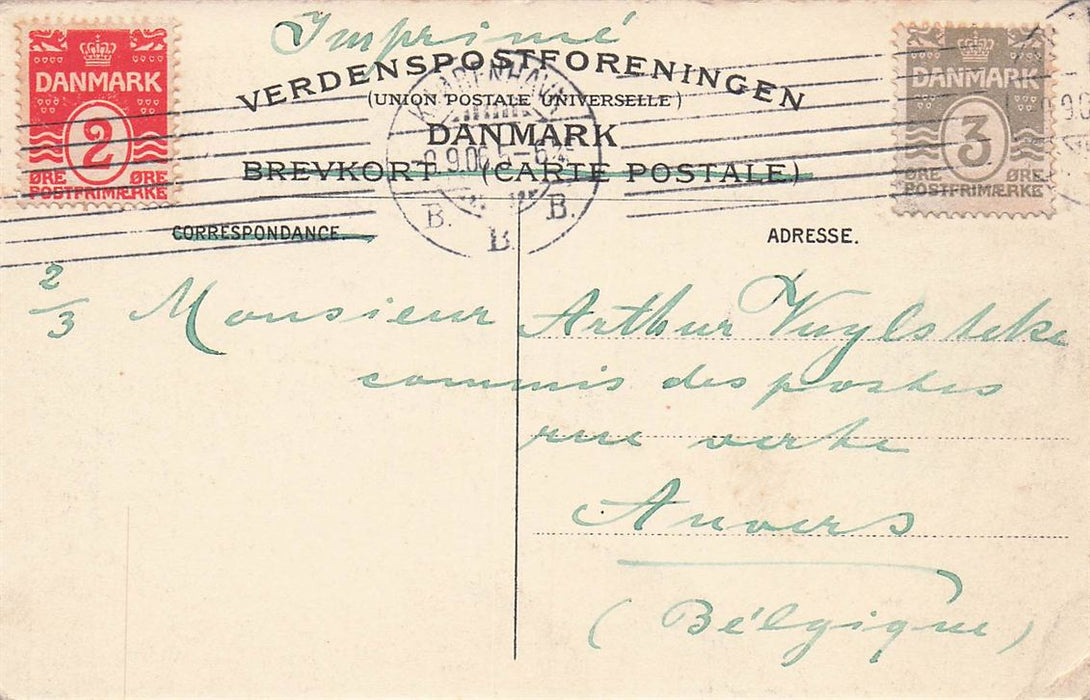 Imprimé
VERDENSPOSTFORENINGEN
(UNION POSTALE UNIVERSELLE)
DANMARK
BREVKORT (CARTE POSTALE)
DANMARK
2
ØRE ØRE
POSTFRIMÆRKE
DANMARK
3
ØRE ØRE
POSTFRIMÆRKE
KJØBENHAVN
9.06
B. B. B.
CORRESPONDANCE.
ADRESSE.
2/3
Monsieur Arthur Vuylsteke
commis des postes
rue verte
Anvers
(Bélgique)